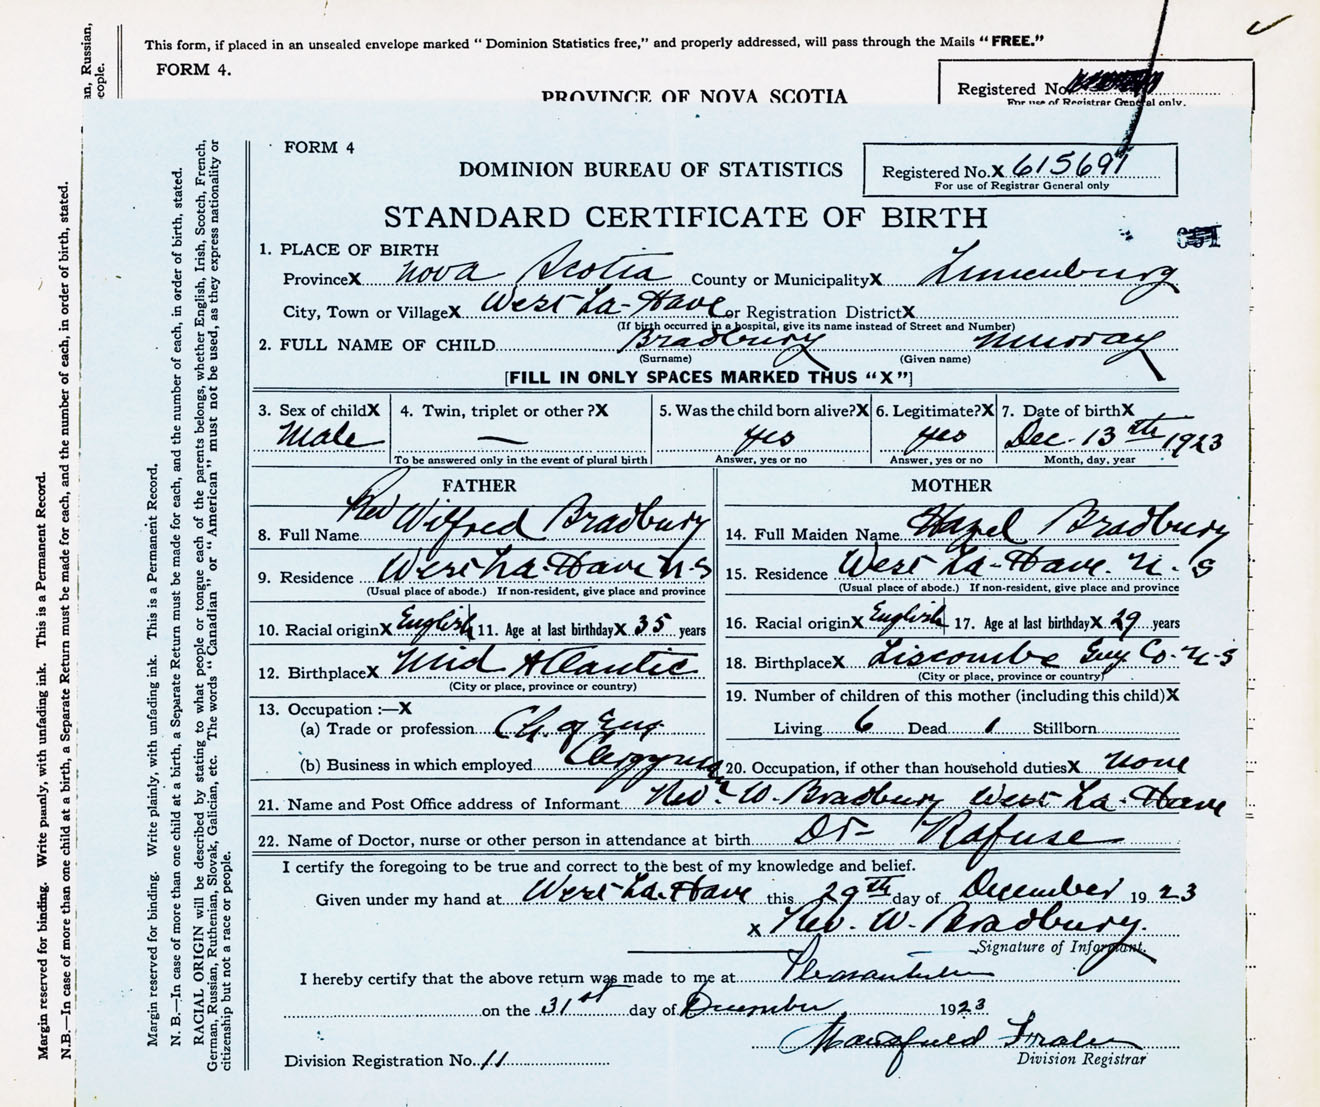 This form, if placed in an unsealed envelope marked “ Dominion Statistics free,” and properly addressed, will pass through the Mails “ FREE.”
FORM 4.
PROVINCE OF NOVA SCOTIA
Registered No.
For use of Registrar General only.
an, Russian,
eople.
Margin reserved for binding. Write plainly, with unfading ink. This is a Permanent Record.
N.B.—In case of more than one child at a birth, a Separate Return must be made for each, and the number of each, in order of birth, stated.
Margin reserved for binding. Write plainly, with unfading ink. This is a Permanent Record.
N. B.—In case of more than one child at a birth, a Separate Return must be made for each, and the number of each, in order of birth, stated.
RACIAL ORIGIN will be described by stating to what people or tongue each of the parents belongs, whether English, Irish, Scotch, French,
German, Russian, Ruthenian, Slovak, Galician, etc. The words “ Canadian ” or “ American ” must not be used, as they express nationality or
citizenship but not a race or people.
FORM 4
DOMINION BUREAU OF STATISTICS
Registered No. X 615691
For use of Registrar General only
STANDARD CERTIFICATE OF BIRTH
1. PLACE OF BIRTH
Province X Nova Scotia County or Municipality X Lunenburg
City, Town or Village X West La-Have or Registration District X
(If birth occurred in a hospital, give its name instead of Street and Number)
2. FULL NAME OF CHILD Bradbury Murray
(Surname) (Given name)
[FILL IN ONLY SPACES MARKED THUS “X”]
3. Sex of child X 4. Twin, triplet or other ? X 5. Was the child born alive? X 6. Legitimate? X 7. Date of birth X
Male — yes yes Dec. 13th 1923
To be answered only in the event of plural birth Answer, yes or no Answer, yes or no Month, day, year
FATHER MOTHER
8. Full Name Rev Wilfred Bradbury 14. Full Maiden Name Hazel Bradbury
9. Residence West La-Have N-S 15. Residence West La-Have. N. S
(Usual place of abode.) If non-resident, give place and province (Usual place of abode.) If non-resident, give place and province
10. Racial origin X English 11. Age at last birthday X 35 years 16. Racial origin X English 17. Age at last birthday X 29 years
12. Birthplace X Mid Atlantic 18. Birthplace X Liscombe Guy Co-N-S
(City or place, province or country) (City or place, province or country)
13. Occupation :—X 19. Number of children of this mother (including this child) X
(a) Trade or profession Ch. of Eng Living 6 Dead 1 Stillborn
(b) Business in which employed Clergyman 20. Occupation, if other than household duties X none
21. Name and Post Office address of Informant Rev. W. Bradbury West La-Have
22. Name of Doctor, nurse or other person in attendance at birth Dr- Rafuse
I certify the foregoing to be true and correct to the best of my knowledge and belief.
Given under my hand at West La-Have this 29th day of December 1923
x Rev. W. Bradbury.
Signature of Informant.
I hereby certify that the above return was made to me at
on the 31st day of December 1923
Division Registration No. 11
Division Registrar